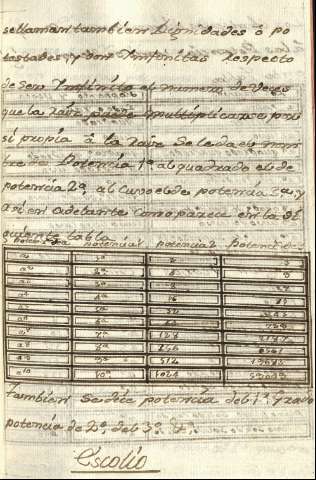 se llaman tambien Dignidades ô po
testades, y son Infinitas respecto
de ser Infinito el numero de veces
que la Raiz puede multiplicarse por
si propia â la raiz se le da el nom
bre de Potencia 1ª, al quadrado el de
potencia 2ª, al Cuvo el de potencia 3ª, y
asi en adelante como parece en la si
guiente tabla
potencia 1 potencia 2
a¹ 1ª 2 3
a² 2ª 4 9
a³ 3ª 8 27
a⁴ 4ª 16 81
a⁵ 5ª 32 243
a⁶ 6ª 64 729
a⁷ 7ª 128 2187
a⁸ 8ª 256 6561
a⁹ 9ª 512 19683
a¹⁰ 10ª 1024
tambien se dice potencia del 1º grado
potencia de 2º, del 3º
Escolio